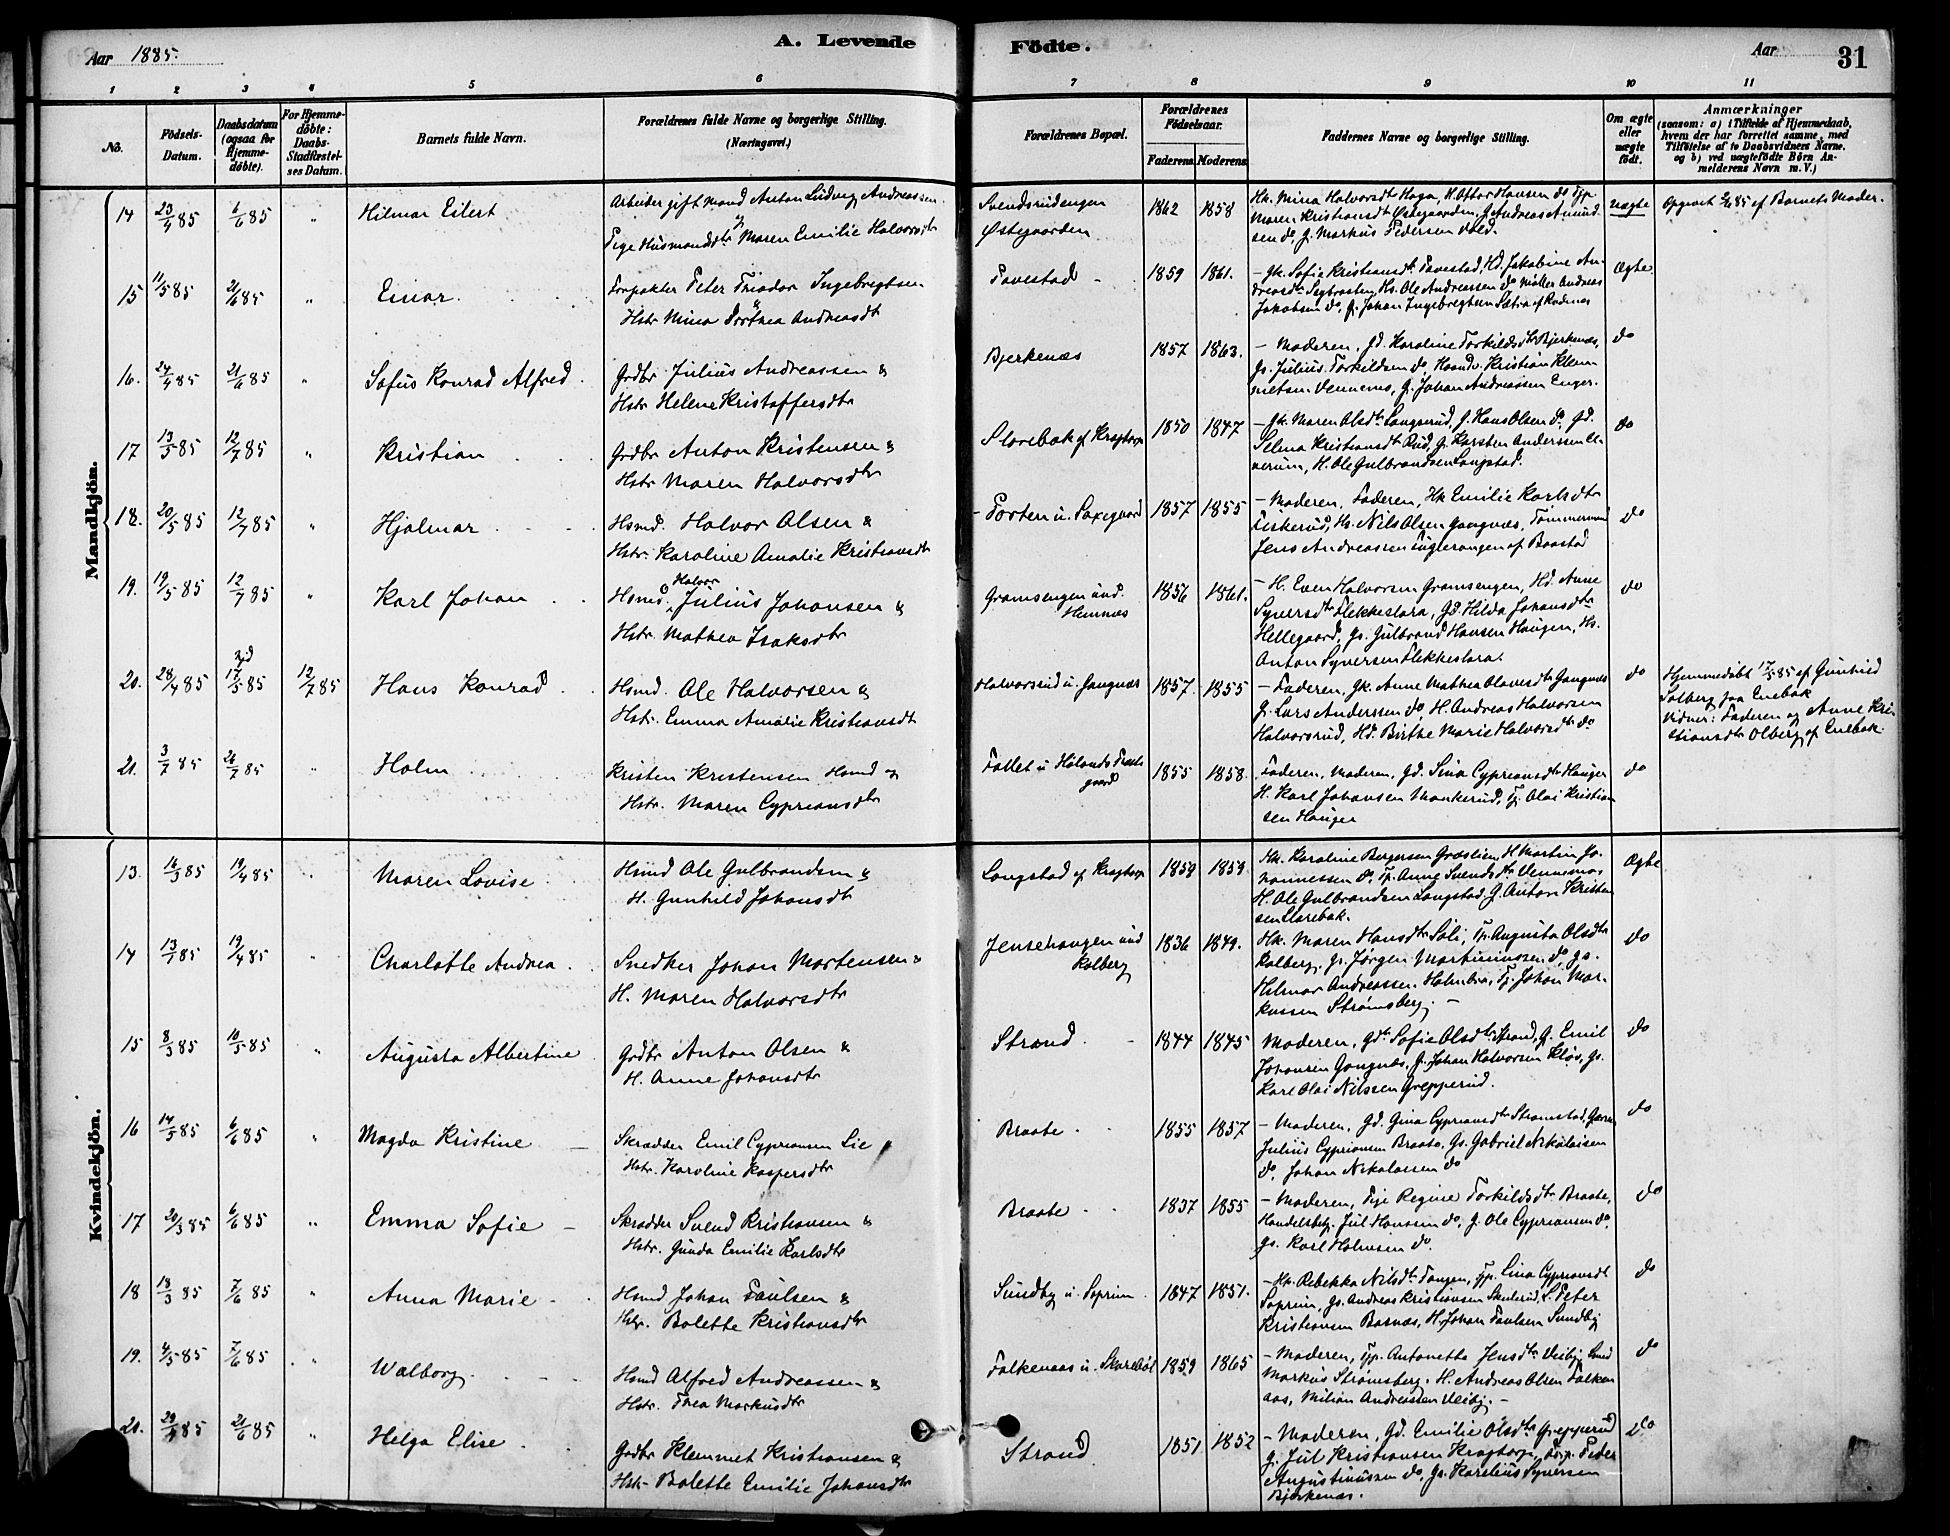 Aar 1885.
A. Levende Födte.
Aar
31
1 2 3 4 5 6 7 8 9 10 11
No.
Födsels-Datum.
Daabsdatum (ogsaa for Hjemmedöbte).
For Hjemmedöbte: Daabs-Stadfæstelses Datum.
Barnets fulde Navn.
Forældrenes fulde Navne og borgerlige Stilling. (Næringsvei.)
Forældrenes Bopæl.
Forældrenes Födselsaar.
Faderens. Moderens.
Faddernes Navne og borgerlige Stilling.
Om ægte eller uægte födt.
Anmærkninger
(saasom: a) i Tilfælde af Hjemmedaab, hvem der har forrettet samme, med Tilföielse af to Daabsvidners Navne, og b) ved uægtefödte Börn Anmelderens Navn m. V.)
Mandkjön.
14 23/4 85 6/6 85 " Hilmar Eilert
Arbeider gift Mand Anton Ludvig Andreassen
og
Pige Husmandsdtr Maren Emilie Halvorsdtr
Svendsrudengen
Østegaarden
1862 1858
Hk. Mina Halvorsdtr Haga, H. Ottar Hansen do Pige
Maren Kristiansdtr Østegaarden, G. Andreas Amund
sen do, G. Markus Pedersen do
uægte
Opgivet 6/6 85 af Barnets Moder.
15 11/5 85 21/6 85 " Einar.
Forpakter Peter Triador Ingebregtsen
&
Hstr Mina Dorthea Andreasdt
Tavestad
1859 1861.
- Gk. Sofie Kristiansdtr Tavestad, Hd. Jakobine An
dreasdtr, Hs. Ole Andreassen do Møller Andreas
Jakobsen do, G. Johan Ingebregtsen Sætra af Rødenes
Ægte
16. 24/4 85 21/6 85 " Sofus Konrad Alfred.
Grdbr Julius Andreassen &
Hstr Helene Kristoffersdtr
Bjerkenæs
1857 1863.
- Moderen, Gd. Karoline Torkildsdtr Bjerkenæs,
Gs. Julius Torkildsen do, Haandv. Kristian Klem
metsen Vennems, G. Johan Andreassen Enger.
do
17 13/5 85 12/7 85 " Kristian
Grdbr Anton Kristensen &
Hstr Maren Halvorsdtr
Slorebak af Kragtorp
1850 1847
- Gk. Maren Olsdtr Langsrud, G. Hans Olsen do, Gd.
Selma Kristiansdtr Rud, G. Karsten Anderssen El
verum, H. Ole Gulbrandsen Langstad.
do
18. 20/5 85 12/7 85 " Hjalmar
Hsmd. Halvor Olsen &
Hstr. Karoline Amalie Kristiansdtr
- Porten u. Saxegaard
1857 1855
- Moderen, Faderen, Hk Emilie Karlsdtr
Fiskerud, Hs. Nils Olsen Gangnæs, Tømmermand
Jens Andreassen Fuglerangen af Baastad
do
19. 19/5 85 12/7 85 " Karl Johan
Halvor
Hsmd. Julius Johansen &
Hstr. Mathea Isaksdtr
Gramsengen und.
Hemnæs
1856 1861.
- H. Even Halvorsen Gramsengen, Hd. Anne
Syversdtr Flekkeslara, Gd. Hilda Johansdtr
Hellegaard, Gs. Gulbrand Hansen Haugen, Hs.
Anton Syversen Flekkeslara.
do
20. 28/4 85 17/5 85 12/7 85 Hans Konrad
Hsmd. Ole Halvorsen &
Hstr. Emma Amalie Kristiansdt
Halvorsrud u. Gangnæs
1857. 1855
- Faderen, Gk. Anne Mathea Olavesdtr Gangnæs
G. Lars Anderssen do, H. Andreas Halvorsen
Halvorsrud, Hd. Birthe Marie Halvorsdtr do
do
Hjemmedøbt 17/5 85 af Gunhild
Solberg fra Enebak
Vidner: Faderen og Anne Kri
stiansdtr Olberg af Enebak.
21. 3/7 85 26/7 85 " Holm
Kristen Kristensen Hsmd og
Hstr. Maren Cypriansdtr
Fallet u Hølands Præste
gaard
1855 1858.
Faderen, Moderen, Gd. Sina Cypriansdtr Hauger
H. Karl Johansen Monkerud, Tj. Olai Kristian
sen Hauger
do
Kvindekjön.
13. 16/3 85 19/4 85 " Maren Lovise
Hsmd Ole Gulbrandsen &
H. Gunhild Johansdt
Langstad af Kragtorp
1859 1859.
Hk. Karoline Borgersen Græslien, H Martin Jo
hannessen do, Tp. Anne Svendsdtr Vennemos
H. Ole Gulbrandsen Langstad, G. Anton Kristen
sen Slorebak.
Ægte
14 13/1 85 19/4 85 " Charlotte Andrea
Snedker Johan Mortensen &
H. Maren Halvorsdtr
Jensehaugen und
Kolberg
1836 1849.
Hk. Maren Hansdtr Sali, Tp. Augusta Olsdtr
Kolberg, Gs. Jørgen Martiniussen do, Gs.
Hilmar Andreassen Holmbro, Tj. Johan Mar-
kussen Strømsberg. -
do
15 8/3 85 10/5 85 " Augusta Albertine
Grdbr Anton Olsen &
H. Anne Johansdtr
Strand.
1844 1845
Moderen, Gdtr Sofie Olsdtr Strand, G. Emil
Johansen Gangnæs, G. Johan Halvorsen Kløv, Gs.
Karl Olai Nilssen Grepperud.
do
16 14/5 85 6/6 85 " Magda Kristine
Skrædder Emil Cypriansen Lie
Hstr. Karoline Kaspersdtr
Braate
1855 1857
- Moderen, Gd. Gina Cypriansdtr Strømstad,
Julius Cypriansen Braate, Gs. Gabriel Nikolaisen
do, Johan Nikolaisen do
do
17 20/3 85 6/6 85 " Emma Sofie
Skrædder Svend Kristiansen &
Hstr. Gunda Emilie Karlsdtr
Braate
1837 1855
- Moderen, Pige Regine Torkildsdtr Braate,
Handelsbetj. Jul Hansen do, G. Ole Cypriansen do,
Gs. Karl Halvorsen do.
do
18 13/3 85 7/6 85 " Anna Marie
Hsmd Johan Paulsen &
Hstr. Bolette Kristiansdtr
Sundby u. Soprim
1847 1851.
- Hk. Rebekka Nilsdtr Tangen, Tp. Lina Cypriansdt
Soprim, Gs. Andreas Kristiansen Skulerud, L. Peter
Kristiansen Barnæs, H. Johan Paulsen Sundby
do
19. 4/5 85 7/6 85 " Walborg.
Hsmd Alfred Andreassen &
Hstr. Thea Markusdtr
Falkenaas u. Skorebøl
1859 1865
- Moderen, Tp. Antonette Jensdtr Veiby, Smed
Markus Strømsberg, H. Andreas Olsen Falken
aas, Milian Andreassen Veiby. -
do
20. 29/4 85 21/6 85 " Helga Elise.
Grdbr Klemmet Kristiansen &
Hstr. Bolette Emilie Johansdtr
Strand
1851 1852
- Moderen, Gd. Emilie Olsdtr Grepperud
G. Jul Kristiansen Kragtorp, Forp. Peder
Augustinussen do, Gs. Karelius Syversen
Bjerkenæs.
do